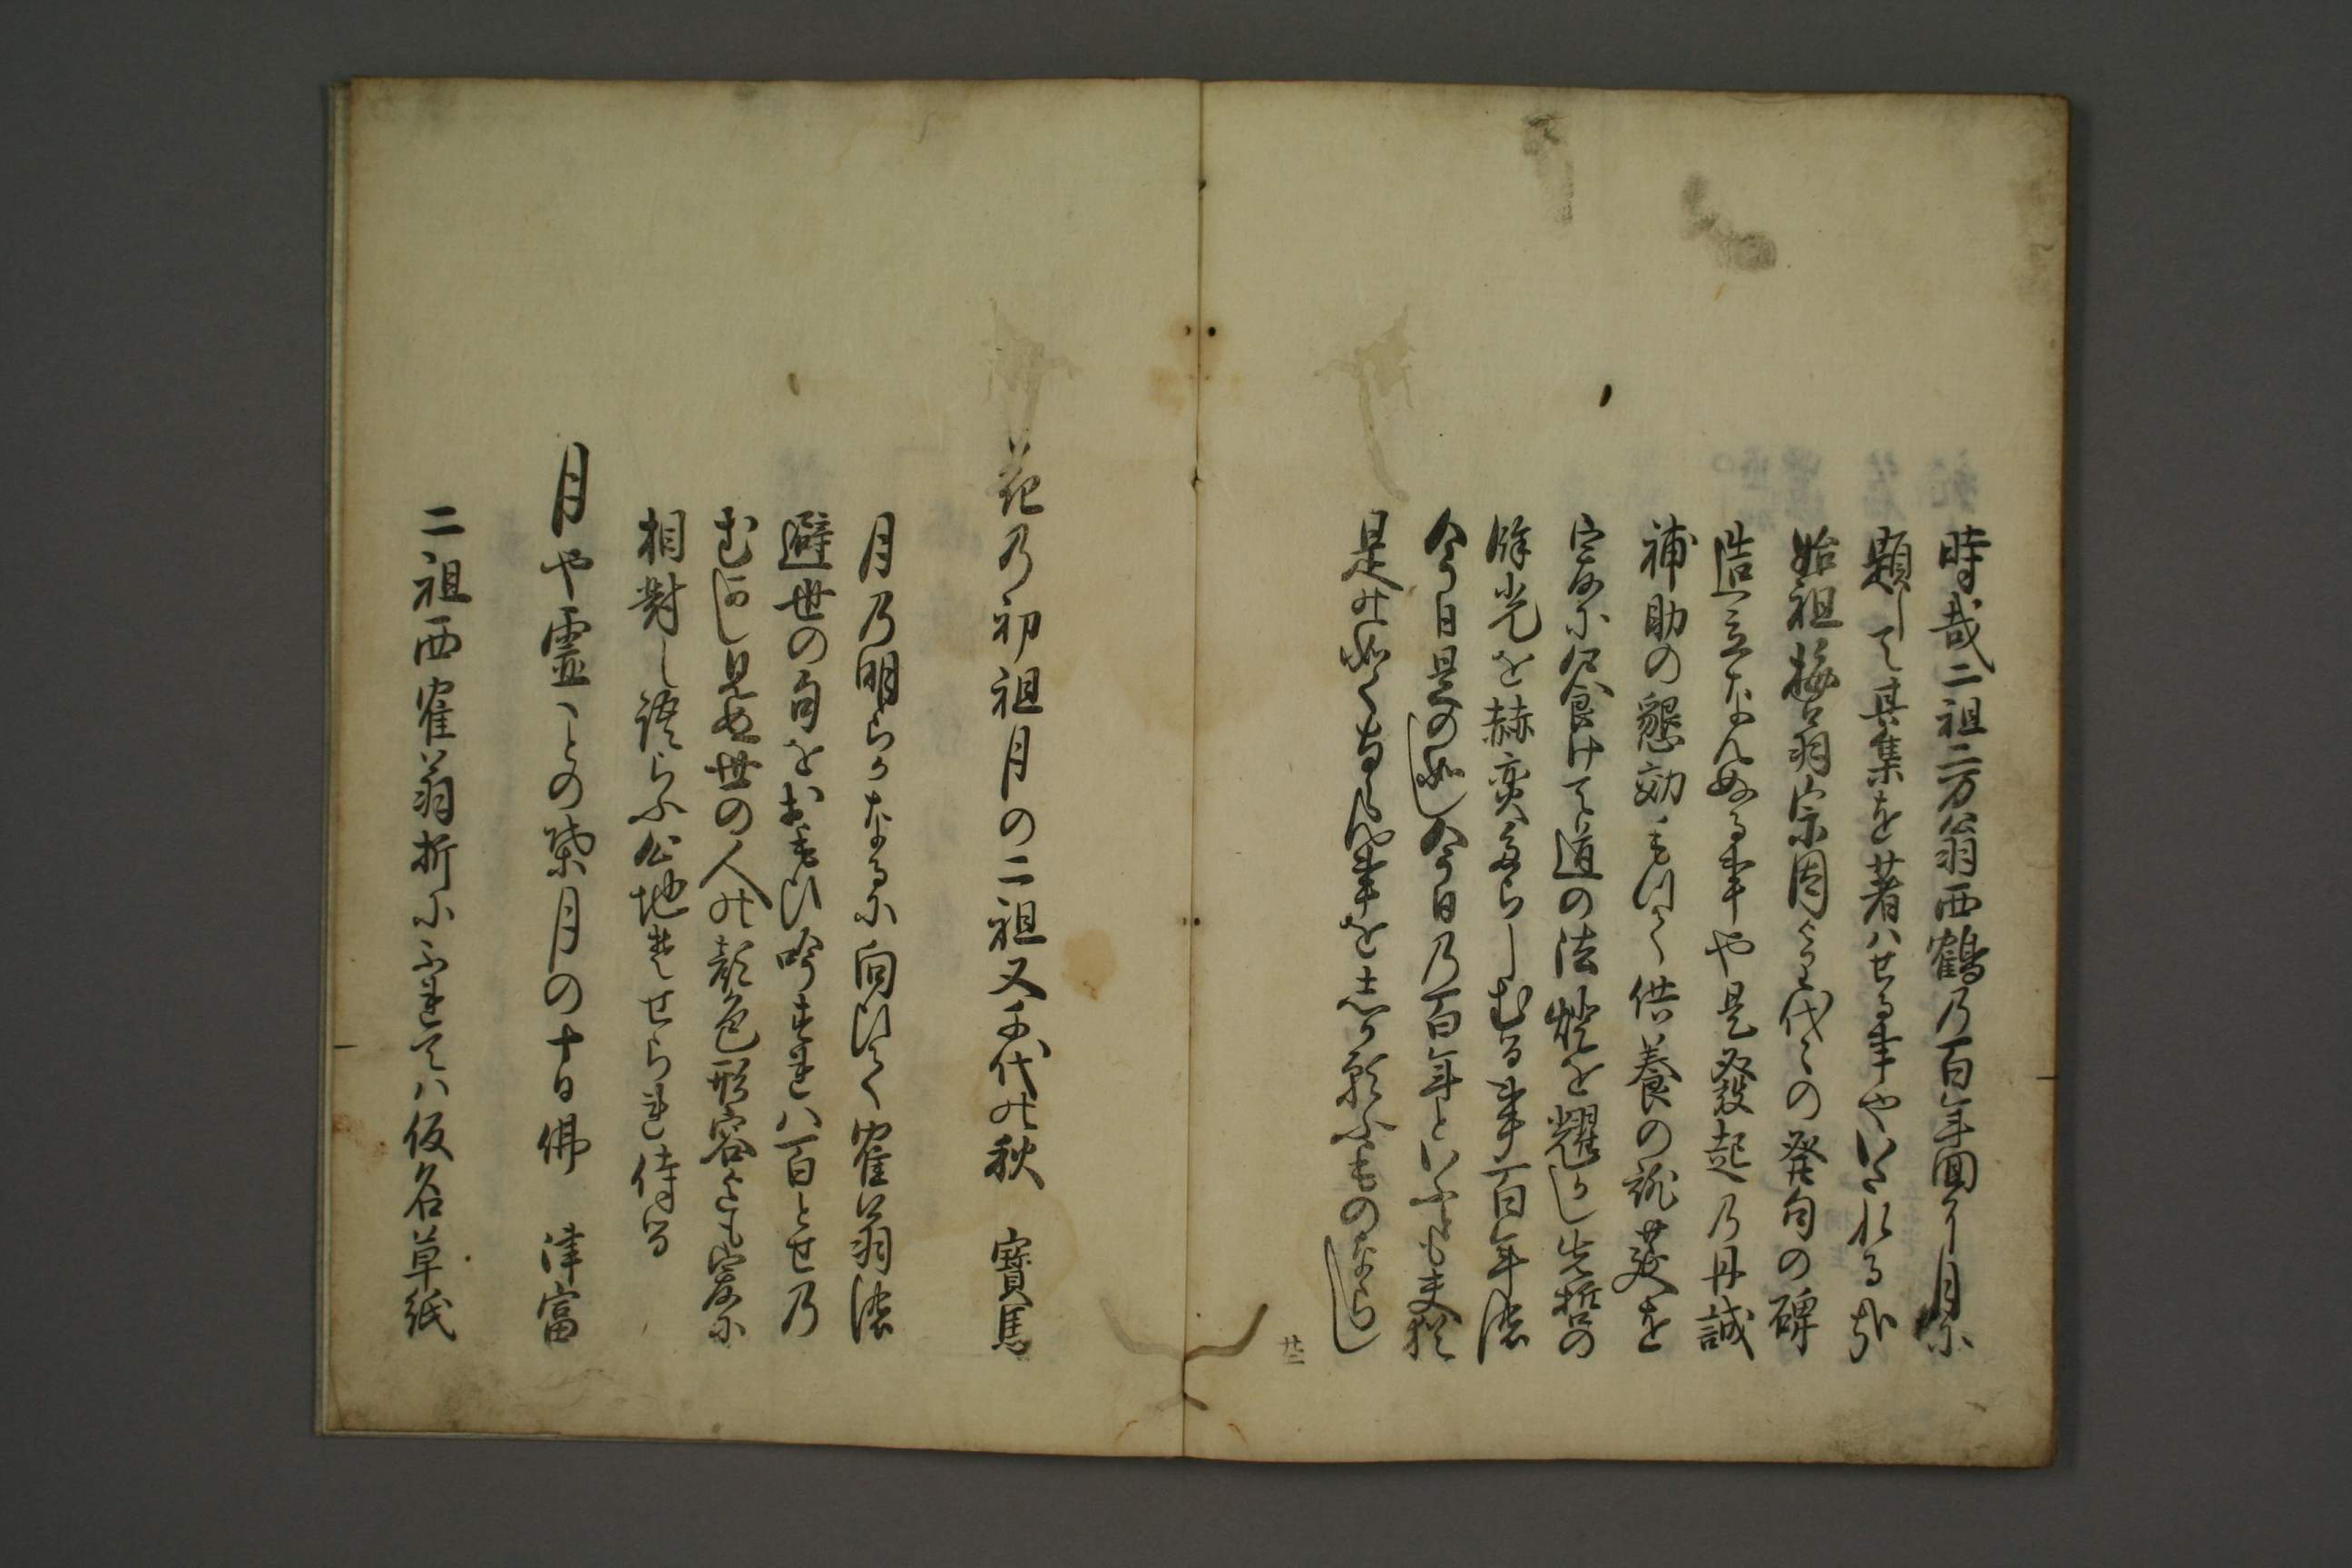 時哉二祖二万翁西鶴乃百年回り月に
題して其集を著ハせる事やいたれる哉
始祖梅翁宗因より代々の発句の碑
造立なんぬる事や是發起乃丹誠
補助の懇効もつて供養の誹莚を
爰に食けて道の法燈を耀かし先哲の
餘光を赫奕たらしむる事百年懐
今日是の如し今日乃百年といふも又猶
是の如くならん事を志か願ふものならし
廿二
花乃初祖月の二祖又千代の秋　寶馬
月乃明らかなるに向ひて寉翁懐
避世の句をおもひ吟すれハ百とせ乃
むかし見ぬ世の人の顔色形容とも爰に
相對し語らふ心地せられ侍る
月や霊ことの柴月の十日佛　津富
二祖西寉翁折にふれてハ仮名草紙